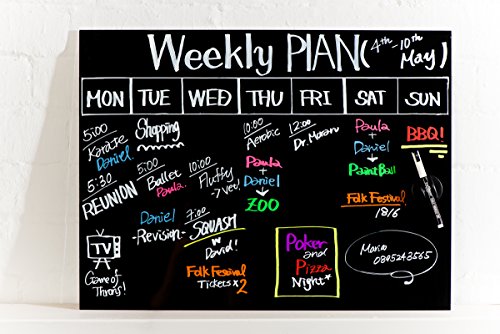 Weekly PLAN (4th-10th May)
MON TUE WED THU FRI SAT SUN
5:00
Karate
Daniel
5:30
REUNION
TV
Game of
Throns!
Shopping
5:00
Ballet
Paula
Daniel
-Revision-
10:00
Fluffy
→Vet
7:00
SQUASH
w
David!
Folk Festival
Tickets x2
10:00
Aerobic
Paula
+
Daniel
↓
ZOO
12:00
Dr. Moran
Poker
and
Pizza
Night*
Paula
+
Daniel
↓
PaintBall
Folk Festival
18/6
BBQ!
Mario
0895243565